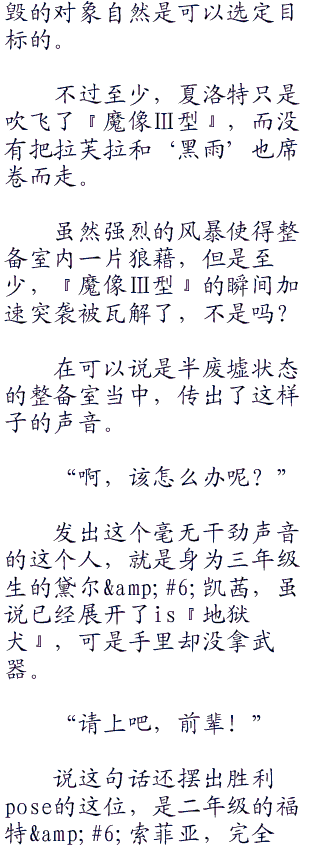 毁的对象自然是可以选定目
标的。
不过至少，夏洛特只是
吹飞了『魔像Ⅲ型』，而没
有把拉芙拉和‘黑雨’也席
卷而走。
虽然强烈的风暴使得整
备室内一片狼藉，但是至
少，『魔像Ⅲ型』的瞬间加
速突袭被瓦解了，不是吗？
在可以说是半废墟状态
的整备室当中，传出了这样
子的声音。
“啊，该怎么办呢？”
发出这个毫无干劲声音
的这个人，就是身为三年级
生的黛尔&amp;#6;凯茜，虽
说已经展开了is『地狱
犬』，可是手里却没拿武
器。
“请上吧，前辈！”
说这句话还摆出胜利
pose的这位，是二年级的福
特&amp;#6;索菲亚，完全